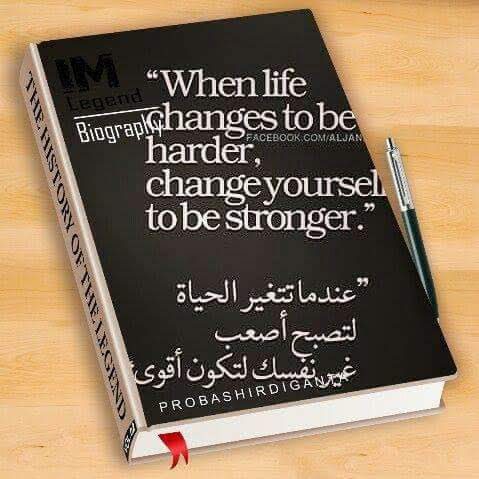 IM
Legend
Biography
“When life
changes to be
FACEBOOK.COM/ALJAN
harder,
change yoursel
to be stronger.”
”عندما تتغير الحياة
لتصبح أصعب
غير نفسك لتكون أقوى
PROBASHIRDIGANTA
THE HISTORY OF THE LEGEND